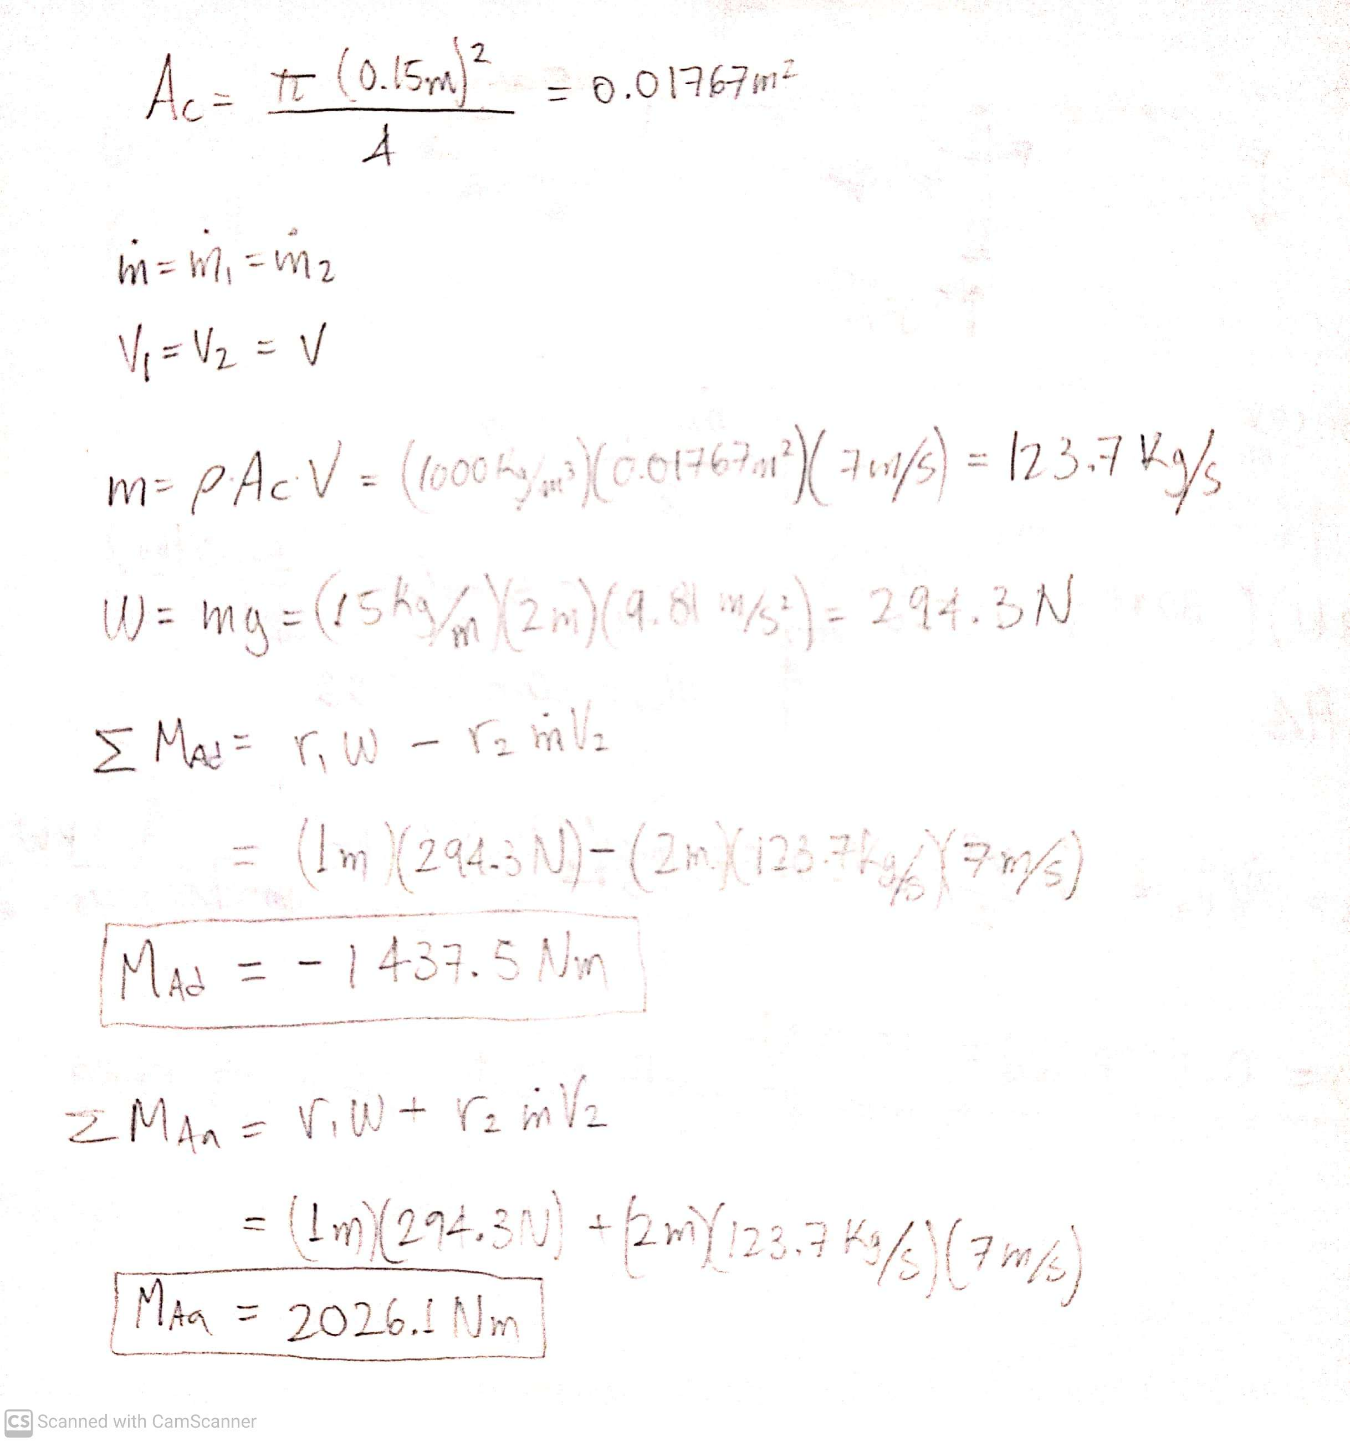 Ac = π (0.15m)² / 4 = 0.01767m²
ṁ = ṁ₁ = ṁ₂
V₁ = V₂ = V
m = ρ·Ac·V = (1000 kg/m³)(0.01767m²)(7m/s) = 123.7 Kg/s
W = mg = (15 kg/m)(2m)(9.81 m/s²) = 294.3N
Σ MAd = r₁ W − r₂ ṁV₂
= (1m)(294.3 N) − (2m)(123.7kg/s)(7m/s)
MAd = −1437.5 Nm
Σ MAa = r₁W + r₂ ṁV₂
= (1m)(294.3N) + (2m)(123.7 Kg/s)(7m/s)
MAa = 2026.1 Nm
CS Scanned with CamScanner